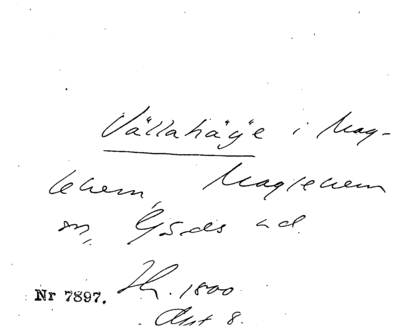 Vällahäje i Mag-
lehem, Maglehem
sn, Gärds hd.
Nr 7897. Hh. 1800
Akt 8.